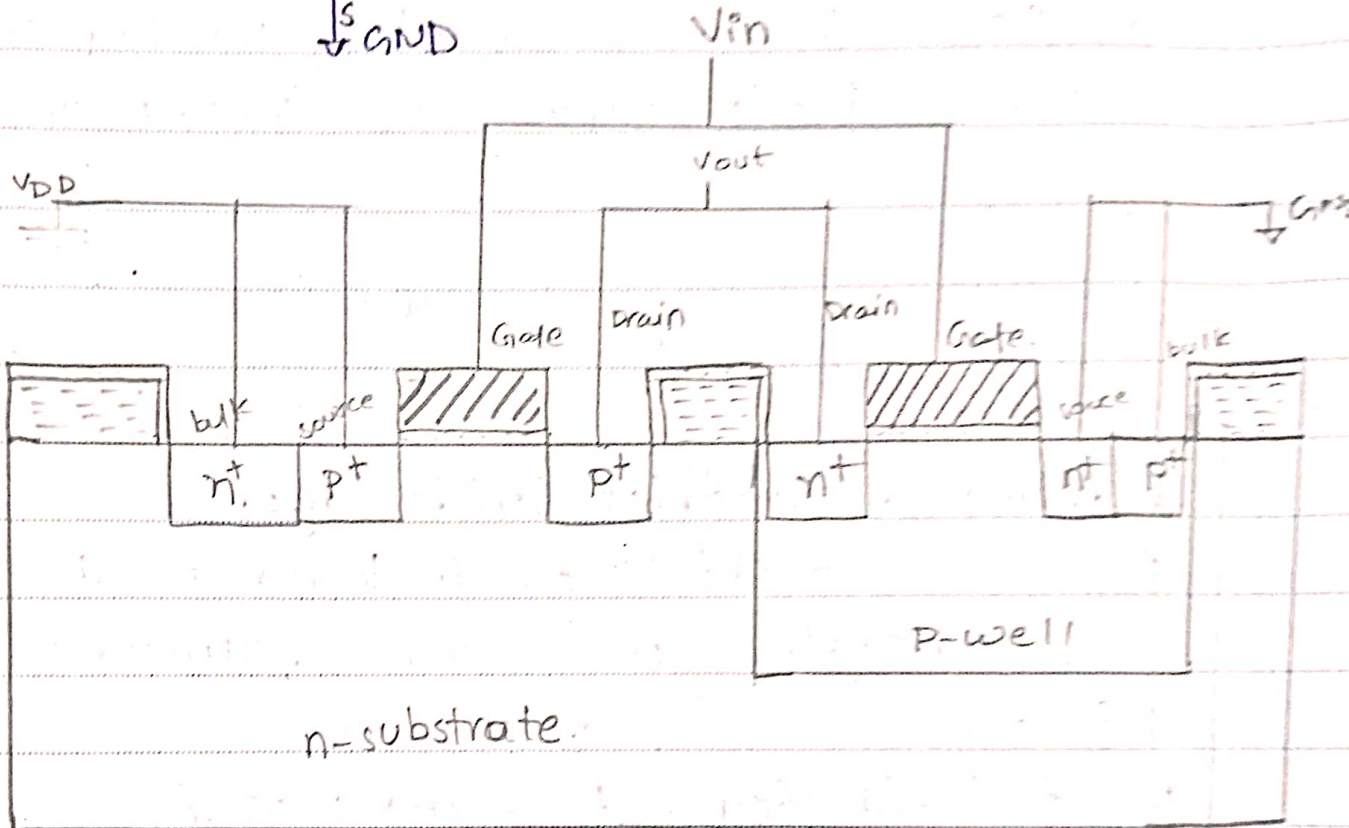 S
GND
Vin
Vout
VDD
Drain
Drain
Gate
Gate
bulk
bulk
source
n+ p+ p+ n+ n+ p+
p-well
n-substrate